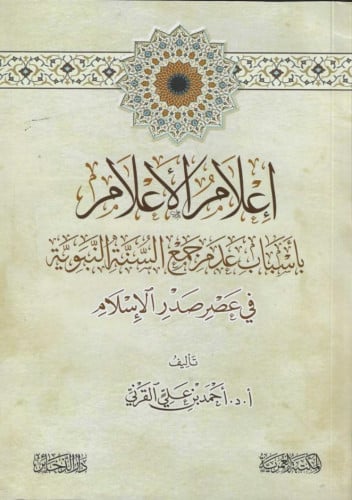 إعلام الأعلام
بأسباب عدم جمع السنة النبوية
في عصر صدر الإسلام
تأليف
أ.د. أحمد بن علي القرني
المكتبة العمرية
دار الذخائر